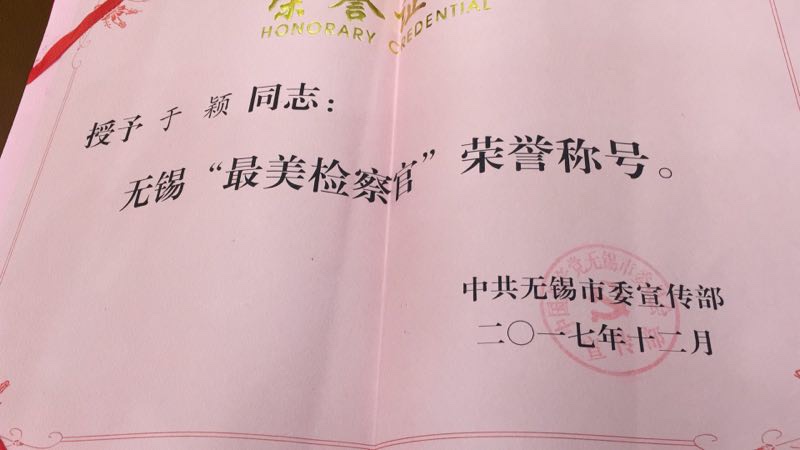 荣誉证
HONORARY CREDENTIAL
授予于颖同志：
无锡“最美检察官”荣誉称号。
中共无锡市委宣传部
二〇一七年十二月